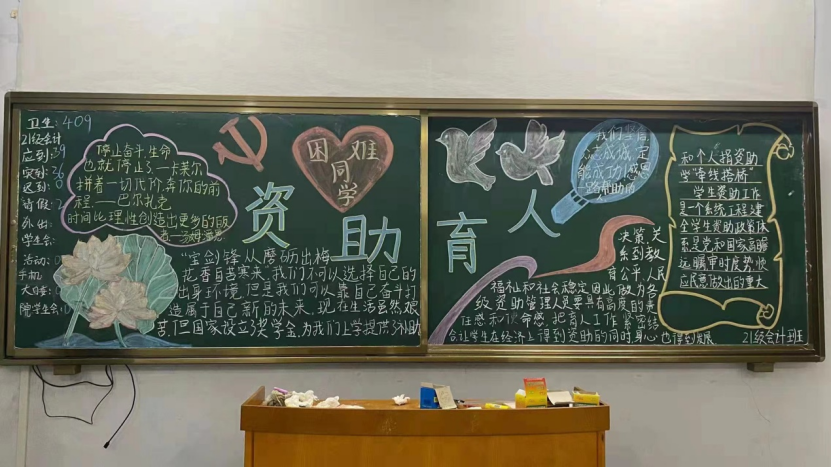 卫生:409
21级会计
应到:39
实到:36
迟到:0
请假:2
外出:
学生会:
活动:0
手机
大日寺:
院学生会:
停止奋斗,生命
也就停止了,—卡莱尔
拼着一切代价,奔你的前
程——巴尔扎克
时间比理性创造出更多的皈
者—汤姆潘恩
困难
同学
资助
"宝剑锋从磨砺出梅
花香自苦寒来,我们不可以选择自己的
出身环境,但是我们可以靠自己奋斗打
造属于自己新的未来,现在生活虽然艰
苦,但国家设立了奖学金,为我们上学提供了补助
育人
我们坚信,
众志成城,定
能成功!感恩
一路帮助的
决策,关
系到教
育公平,人民
福祉和社会稳定因此,做为各
级资助管理人员要具有高度的责
任感和使命感,把育人工作紧密结
合让学生在经济上得到资助的同时,身心也得到发展
和个人捐资助
学"牵线搭桥"
学生资助工作
是一个系统工程,建
全学生资助政策体
系是党和国家高瞻
远瞩审时度势快
应民意做出的重大
21级会计班